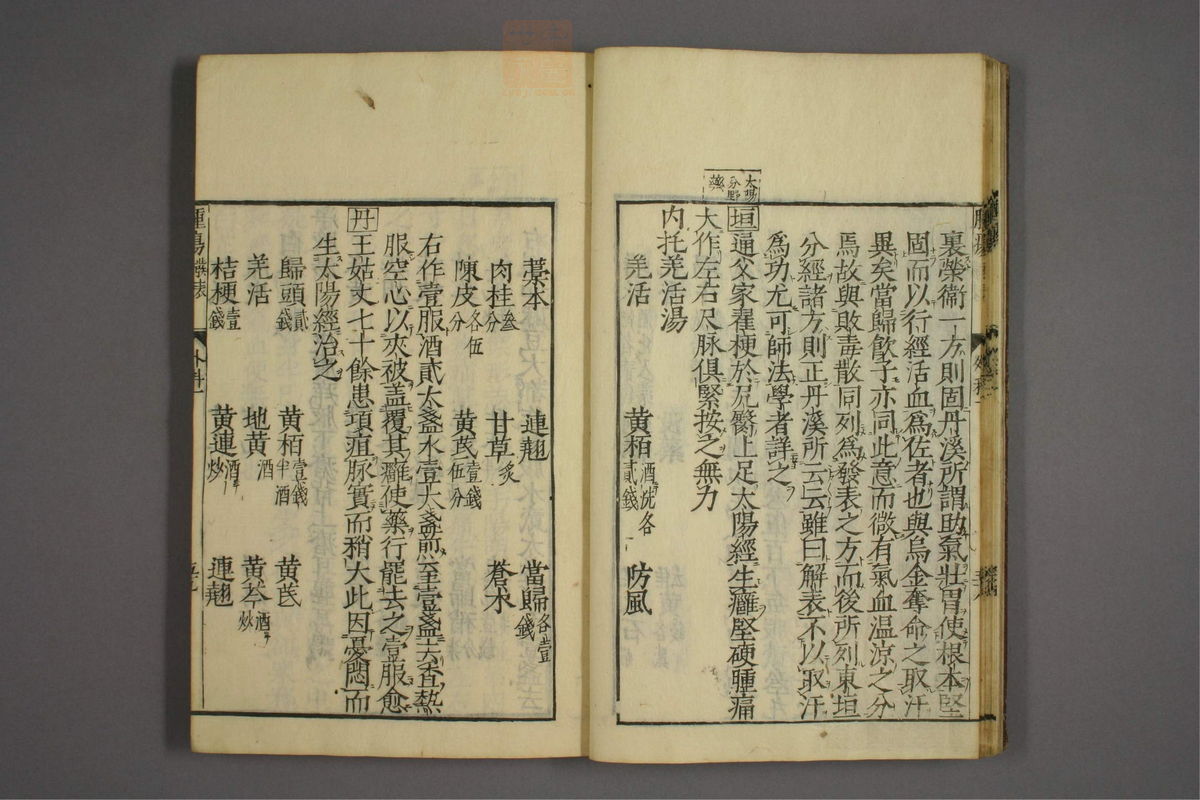 裏榮衛一方則固丹溪所謂助氣壯胃使根本堅
固而以行經活血爲佐者也與烏金奪命之取汗
異矣當歸飲子亦同此意而微有氣血温涼之分
焉故與敗毒散同列爲發表之方而後所列東垣
分經諸方則正丹溪所云云雖曰解表不以取汗
爲功尤可師法學者詳之
太陽分野藥
垣 通父家翟梗於尻臀上足太陽經生癰堅硬腫痛
大作左右尺脉俱緊按之無力
内托羌活湯
羌活 黄栢酒洗各貳錢 防風
藁本 連翹 當歸各壹錢
肉桂叁分 甘草炙 蒼朮
陳皮各伍分 黄芪壹錢伍分
右作壹服酒貳大盞水壹大盞煎至壹盞去査熱
服空心以夾被盖覆其癰使藥行罷去之壹服愈
丹 王姑丈七十餘患項疽脉實而稍大此因憂悶而
生太陽經治之
歸頭貳錢 黄栢壹錢半酒 黄芪
羌活 地黄酒 黄芩酒炒
桔梗壹錢 黄連酒炒 連翹
腫瘍發表 外科一